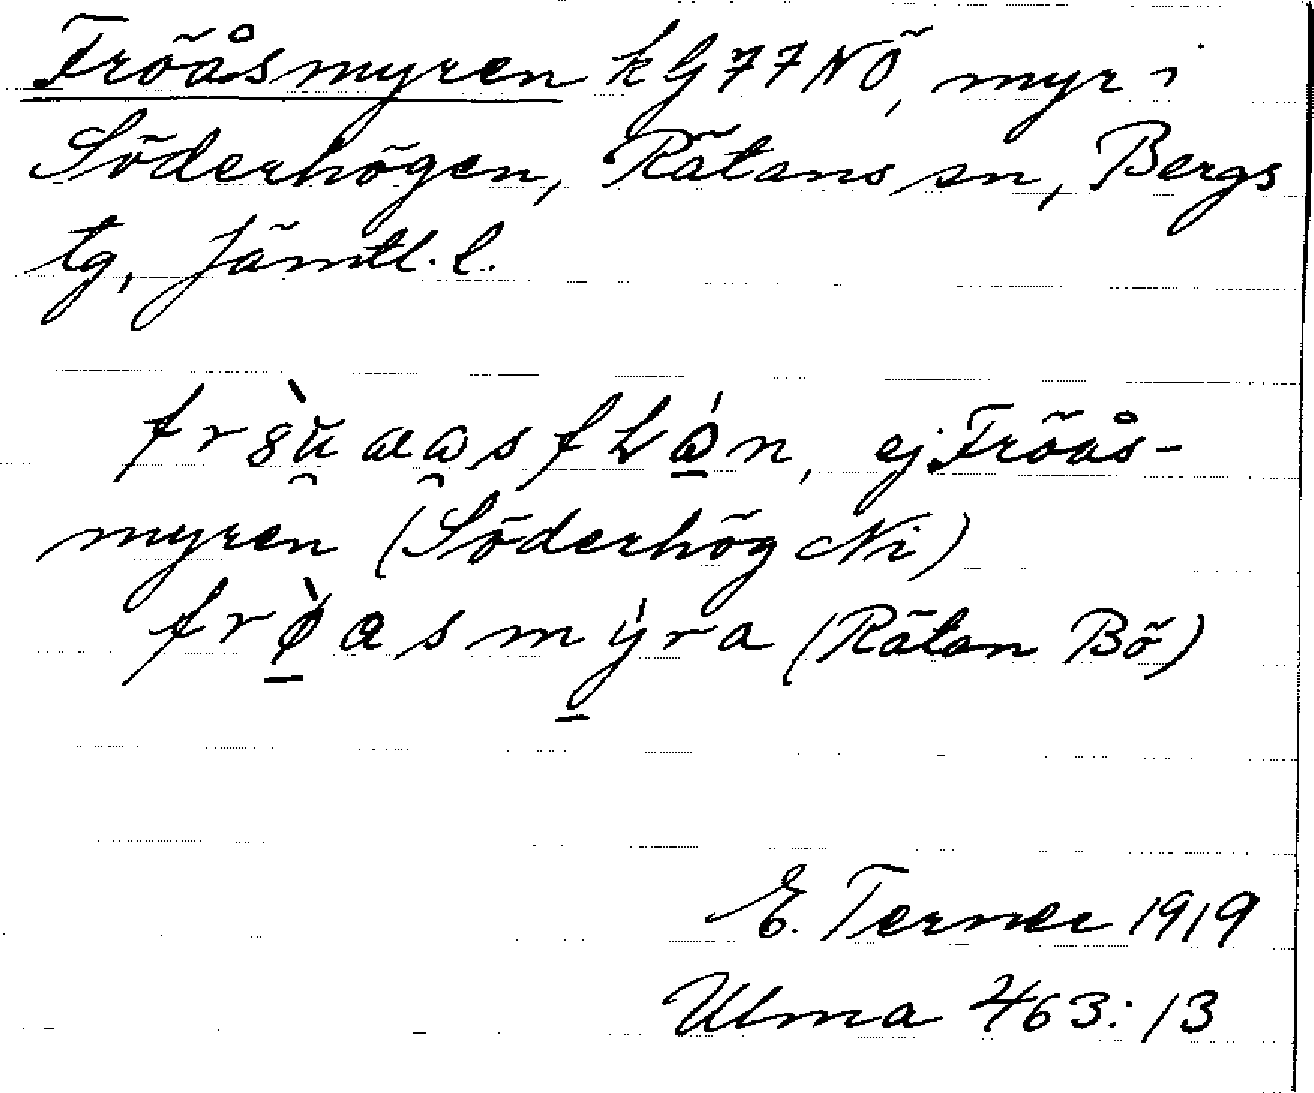 Fröåsmyren kG77NÖ, myr i
Söderhögen, Rätans sn, Bergs
tg, Jämtl. l.
ej Fröås-
myren (Söderhög Ni)
frø̀asmýra (Rätan Bö)
E. Terner 1919
Ulma 463:13